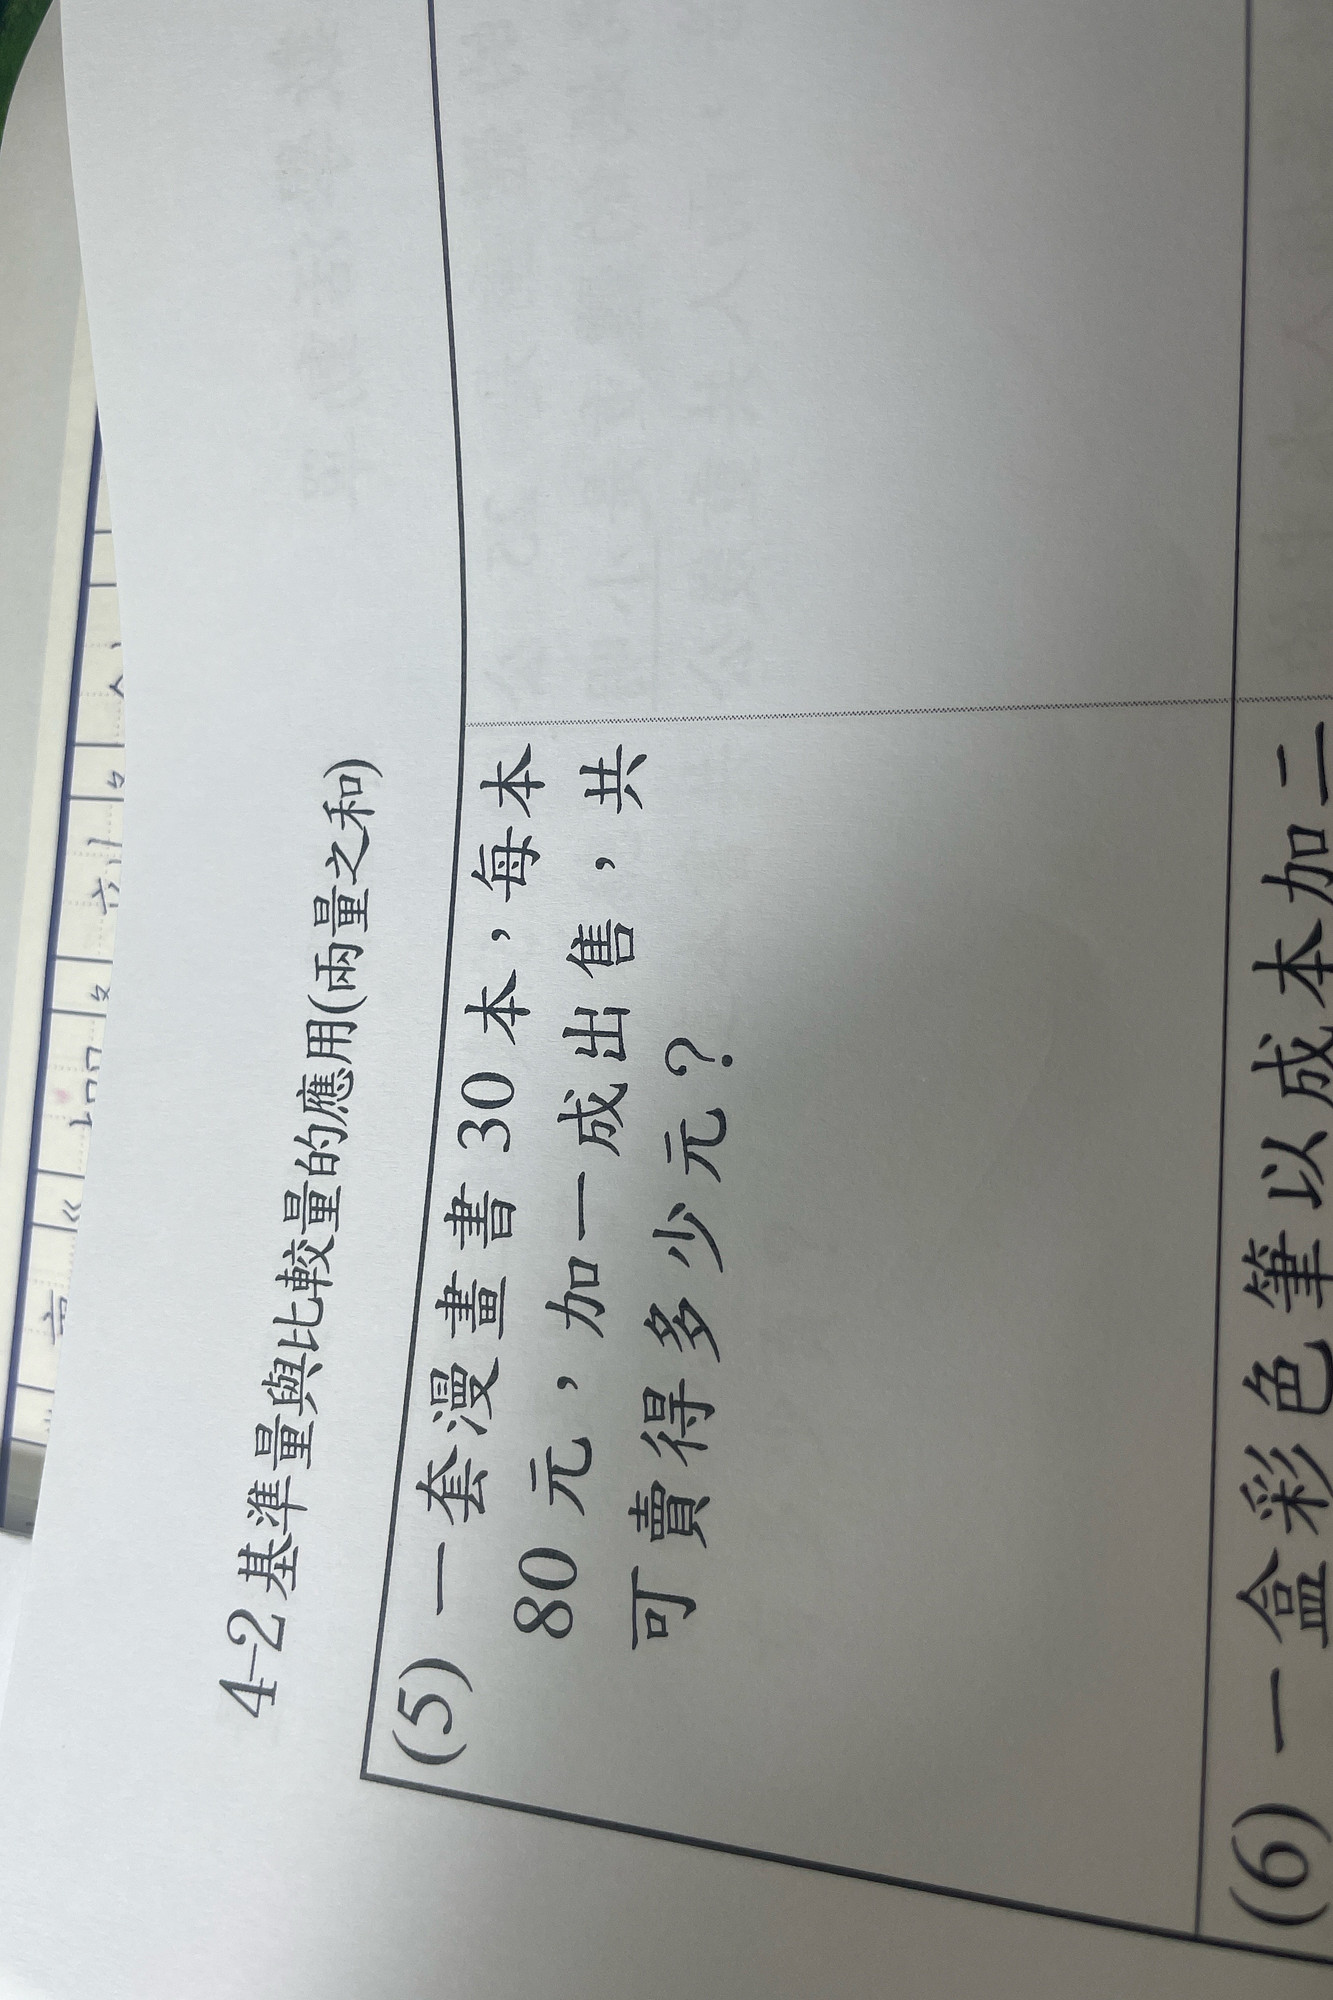 4-2 基準量與比較量的應用(兩量之和)
(5) 一套漫畫書 30 本，每本
80 元，加一成出售，共
可賣得多少元？
(6) 一盒彩色筆以成本加二